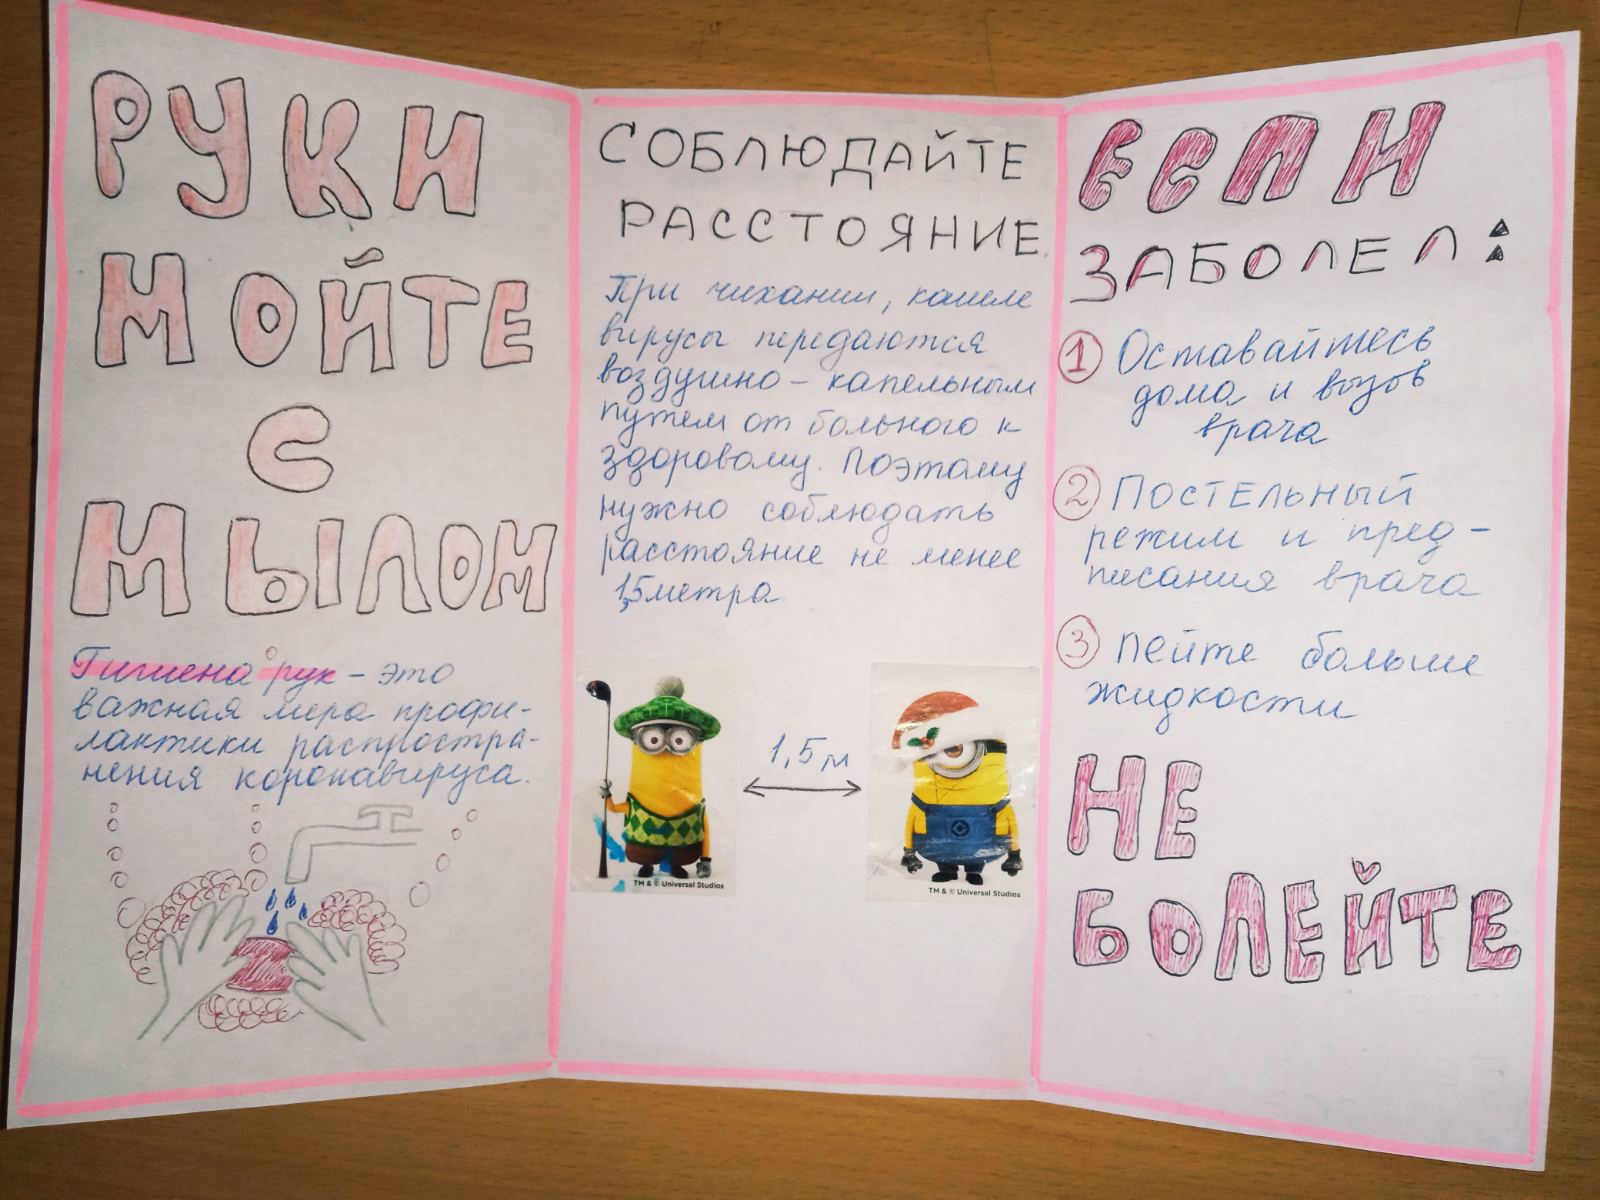 РУКИ
МОЙТЕ
С
МЫЛОМ
Гигиена рук - это
важная мера профи-
лактики распростра-
нения коронавируса.
СОБЛЮДАЙТЕ
РАССТОЯНИЕ.
При чихании, кашле
вирусы передаются
воздушно - капельным
путем от больного к
здоровому. Поэтому
нужно соблюдать
расстояние не менее
1,5метра
1,5 м
TM & © Universal Studios
TM & © Universal Studios
ЕСЛИ
ЗАБОЛЕЛ:
1 Оставайтесь
дома и вызов
врача
2 Постельный
режим и пред-
писания врача
3 Пейте больше
жидкости
НЕ
БОЛЕЙТЕ